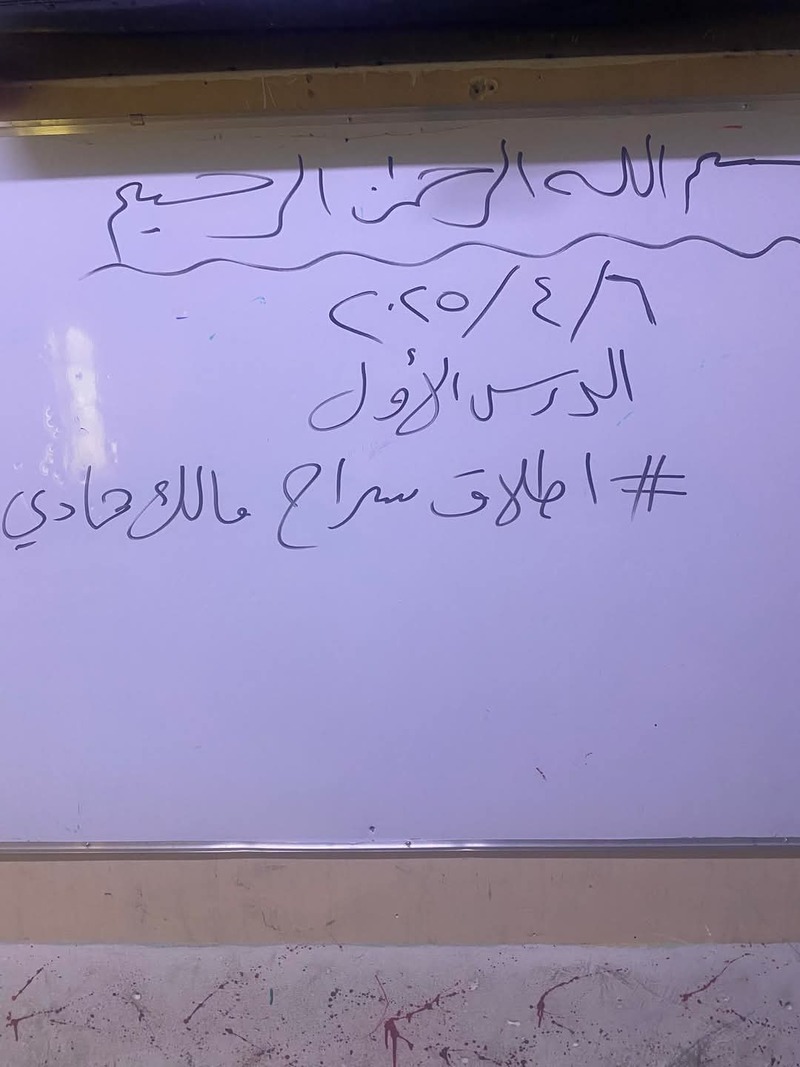 بسم الله الرحمن الرحيم
٢٠٢٥/٤/٦
الدرس الأول
# اطلاق سراح مالك هادي